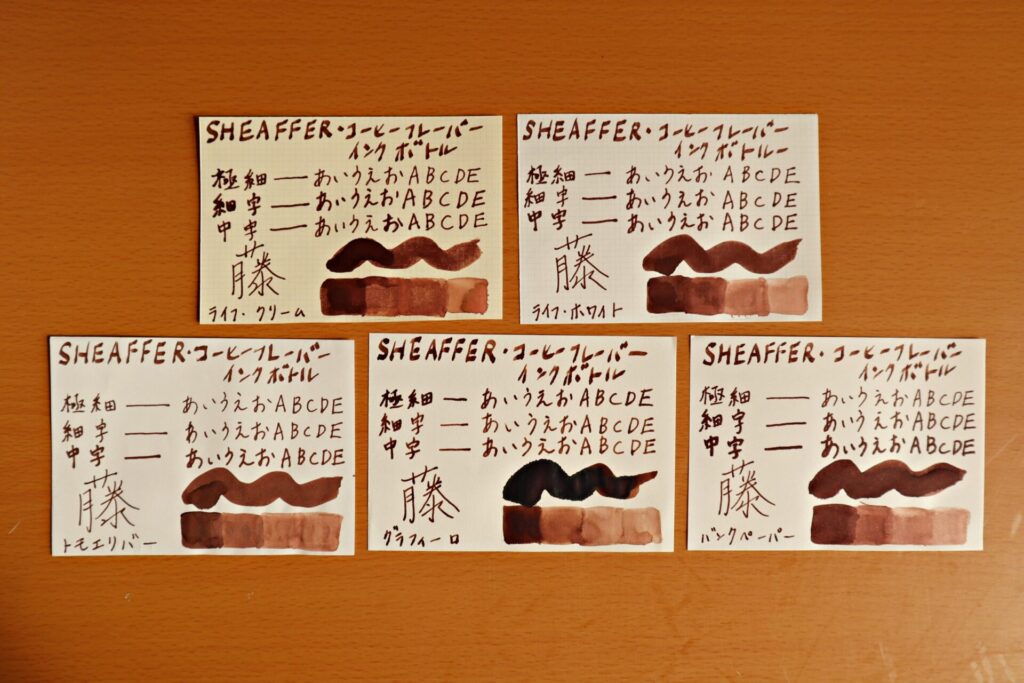 SHEAFFER・コーヒーフレーバー
インクボトル
極細 ― あいうえおABCDE
細字 ― あいうえおABCDE
中字 ― あいうえおABCDE
藤
ライフ・クリーム
SHEAFFER・コーヒーフレーバー
インクボトルー
極細 ― あいうえおABCDE
細字 ― あいうえおABCDE
中字 ― あいうえおABCDE
藤
ライフ・ホワイト
SHEAFFER・コーヒーフレーバー
インクボトル
極細 ― あいうえおABCDE
細字 ― あいうえおABCDE
中字 ― あいうえおABCDE
藤
トモエリバー
SHEAFFER・コーヒーフレーバー
インクボトル
極細 ― あいうえおABCDE
細字 ― あいうえおABCDE
中字 ― あいうえおABCDE
藤
グラフィーロ
SHEAFFER・コーヒーフレーバー
インクボトル
極細 ― あいうえおABCDE
細字 ― あいうえおABCDE
中字 ― あいうえおABCDE
藤
バンクペーパー